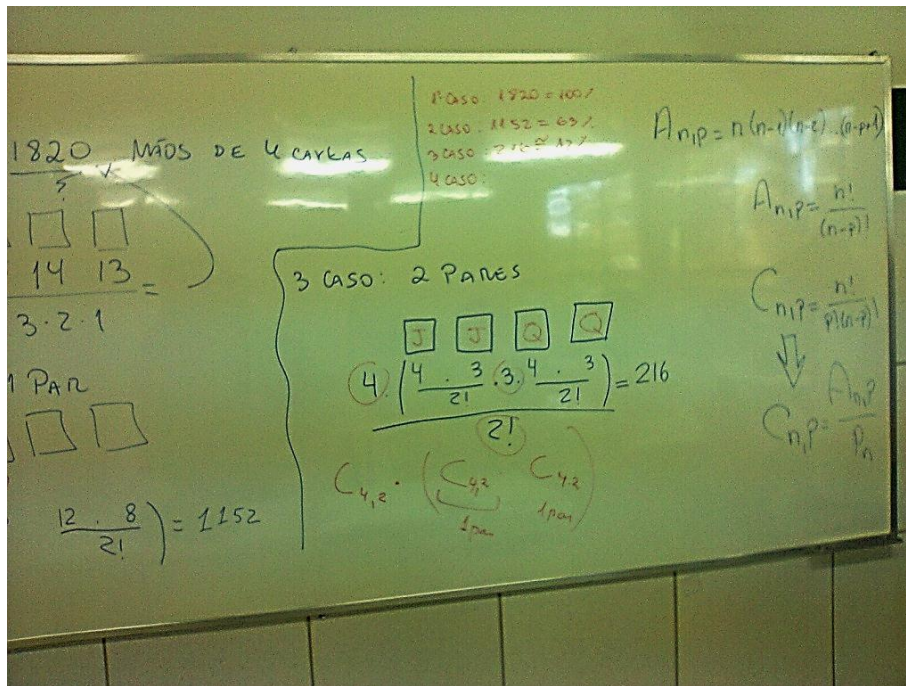 1820 MÃOS DE 4 CARTAS
?
14 13 =
3·2·1
1 PAR
12 . 8
2!
) = 1152
1º CASO: 1820 = 100%
2 CASO: 1152 = 63%
3 CASO: 216 ≅ 12%
4 CASO:
3 CASO: 2 PARES
J J Q Q
4. (4 . 3 / 2! . 3. 4 . 3 / 2!) = 216
2!
C4,2 . (C4,2 C4,2)
1par 1par
An,p = n(n-1)(n-2)...(n-p+1)
An,p = n! / (n-p)!
Cn,p = n! / p!(n-p)!
Cn,p = An,p / Pn